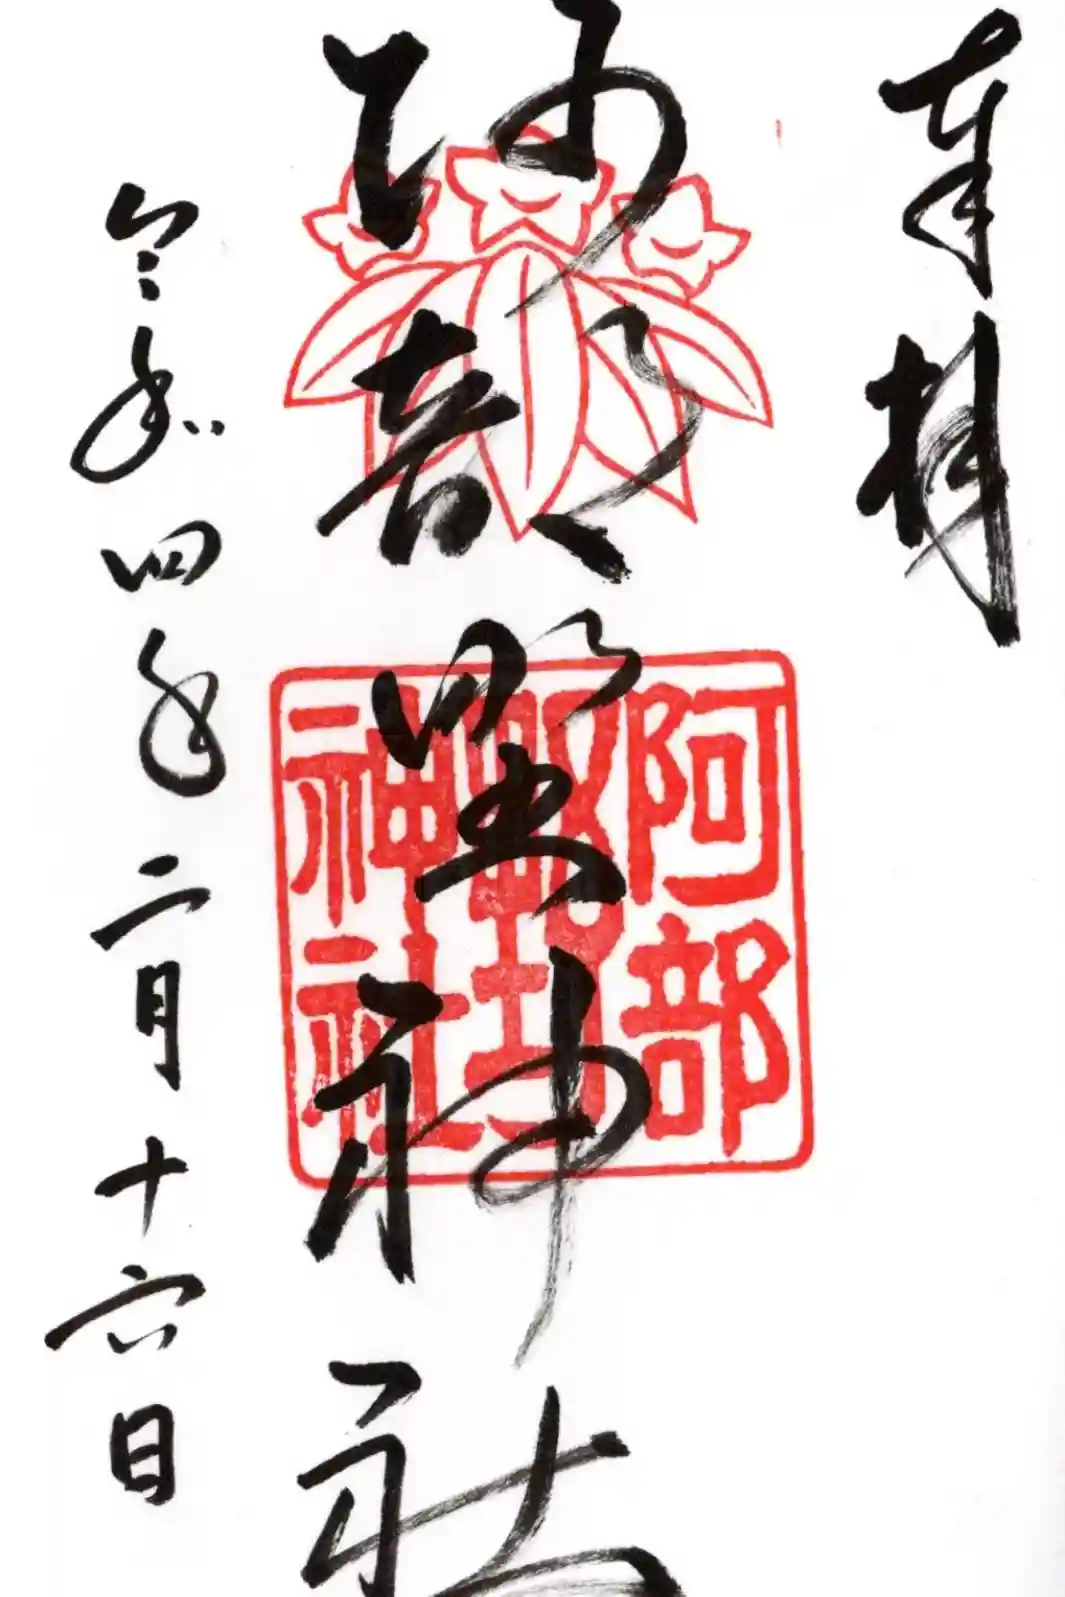 奉拝
阿部野神社
阿部
野
神社
令和四年二月十六日